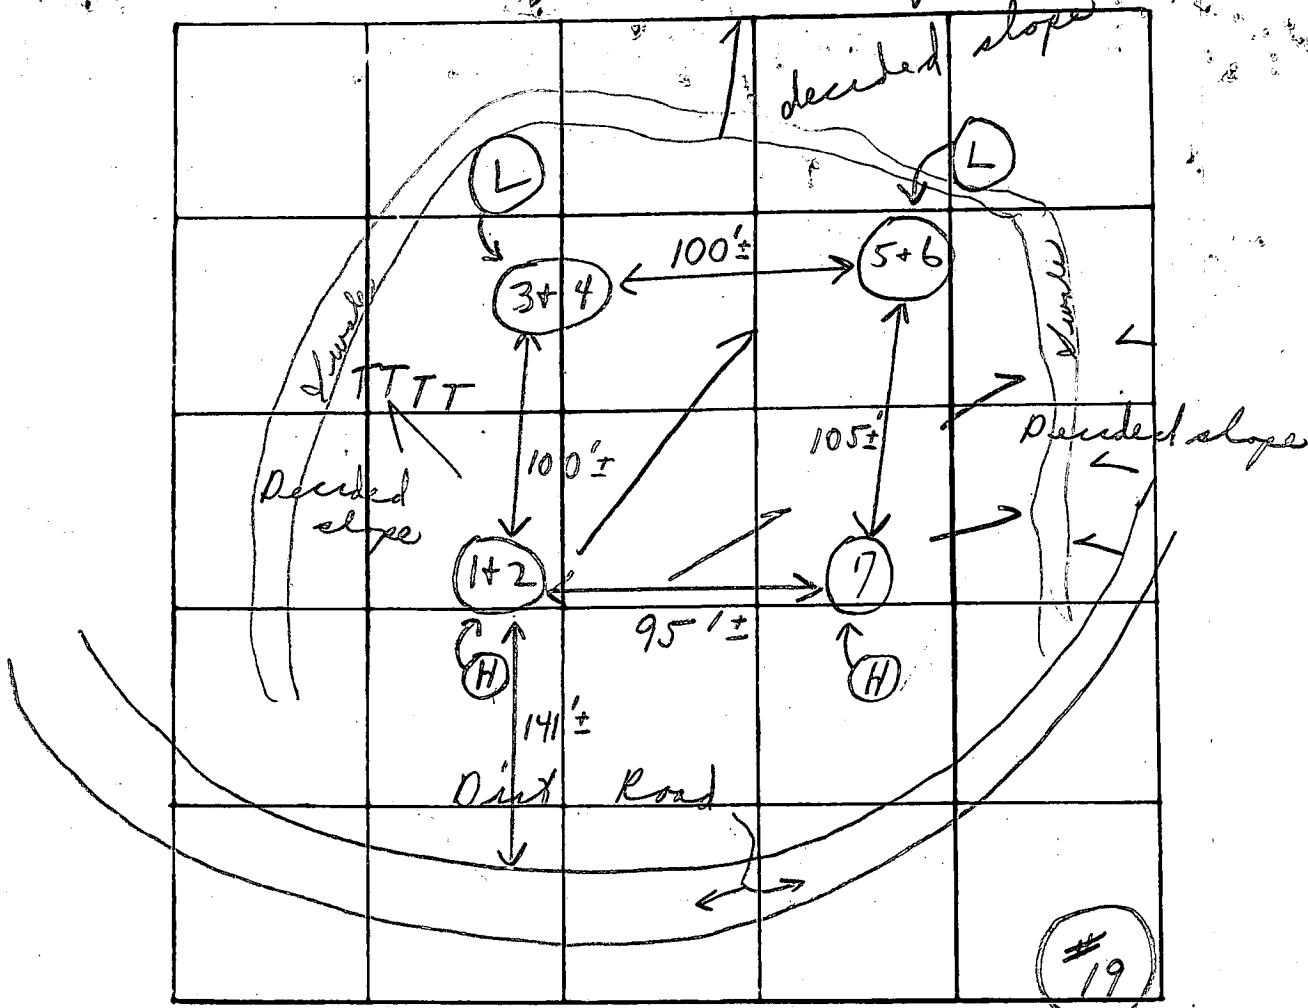 decided slope
L
L
100'±
5+6
3+4
Swale
Swale
TTTT
105±'
Decided slope
100'±
Decided
slope
1+2
7
95'±
H
H
141'±
Dirt Road
#19